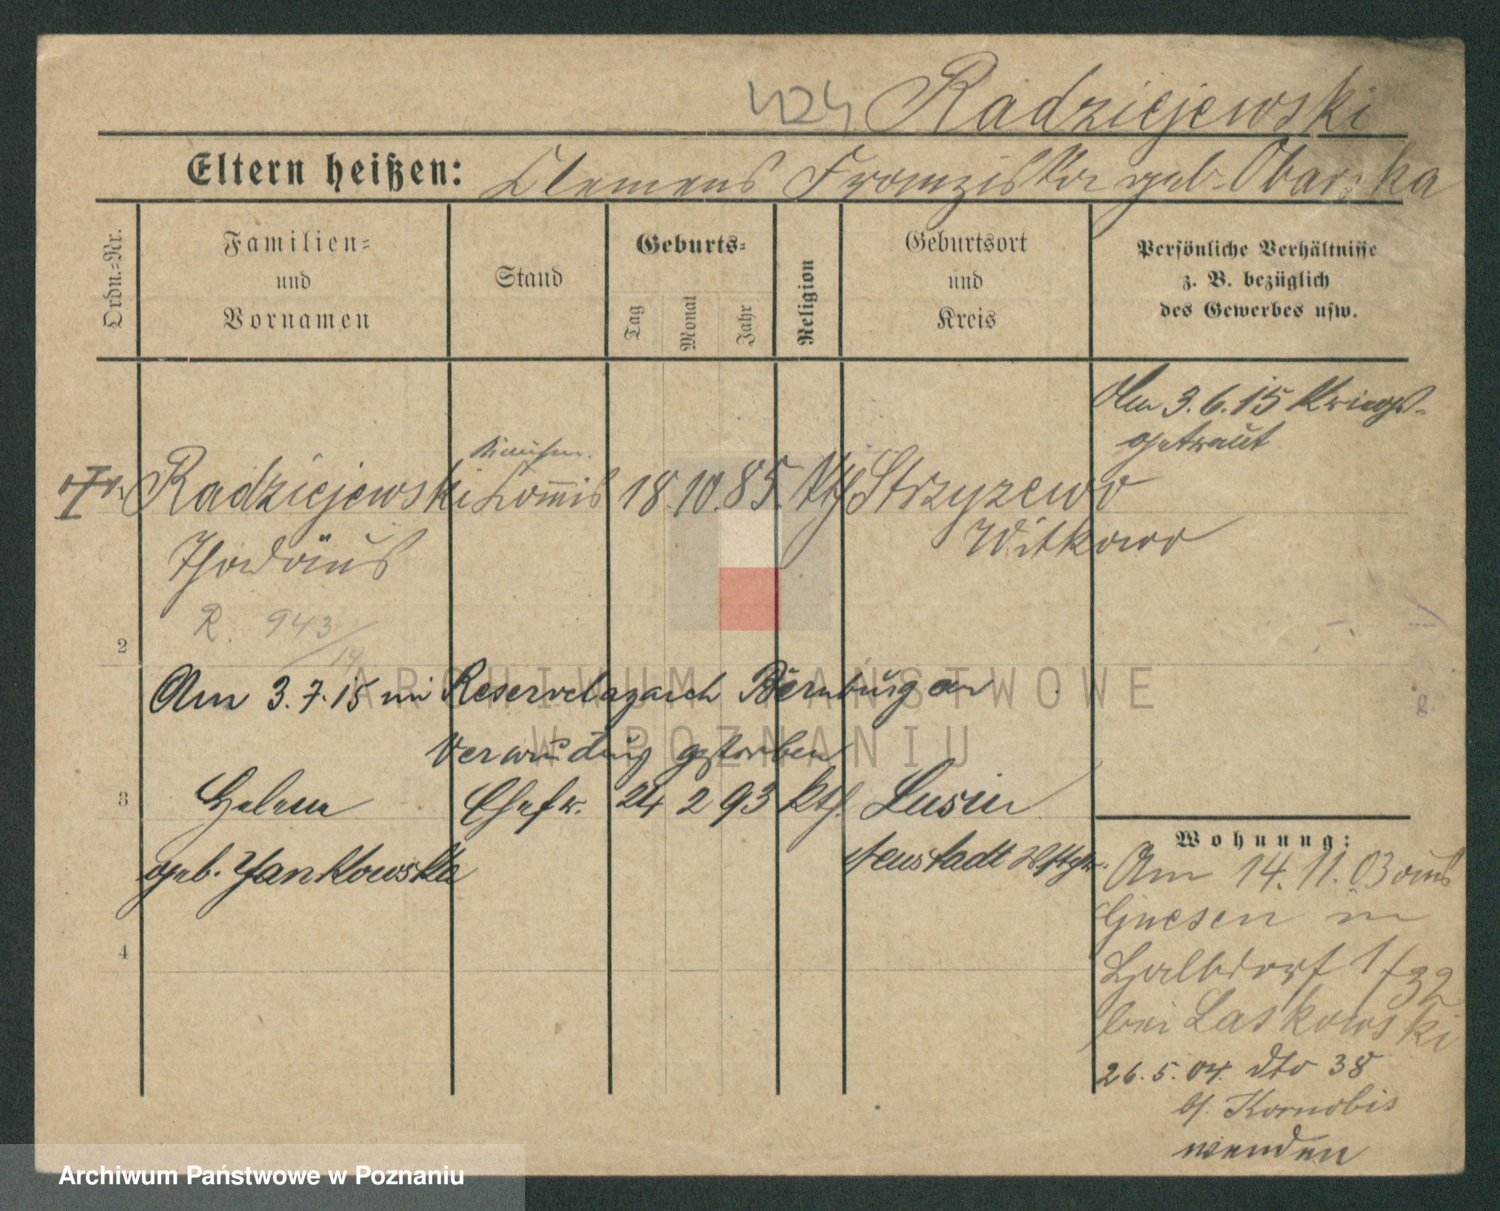 Radziejewski
Eltern heißen: Clemens Franziska geb. Obarska
Ordn.-Nr.
Familien-
und
Vornamen
Stand
Geburts-
Tag
Monat
Jahr
Religion
Geburtsort
und
Kreis
Persönliche Verhältnisse
z. B. bezüglich
des Gewerbes usw.
Am 3.6.15 Kriegs-
getraut
Radziejewski Commis 18. 10. 85. Ktl Strzyzewo
Witkowo
Thadäus
R. 943/14
2
Am 3.7.15 im Reservelazareth Bernburg an
Verwundung gestorben
3 Helene Ehefr. 24 2 93 kth. Lusin
geb. Jankowska Neustadt Wstpr.
4
Wohnung:
Am 14.11.03 aus
Gnesen in
Halbdorf 1/32
bei Laskowski
26.5.04. dto 38
bf. Kornobis
wenden
ARCHIWUM PAŃSTWOWE
W POZNANIU
Archiwum Państwowe w Poznaniu